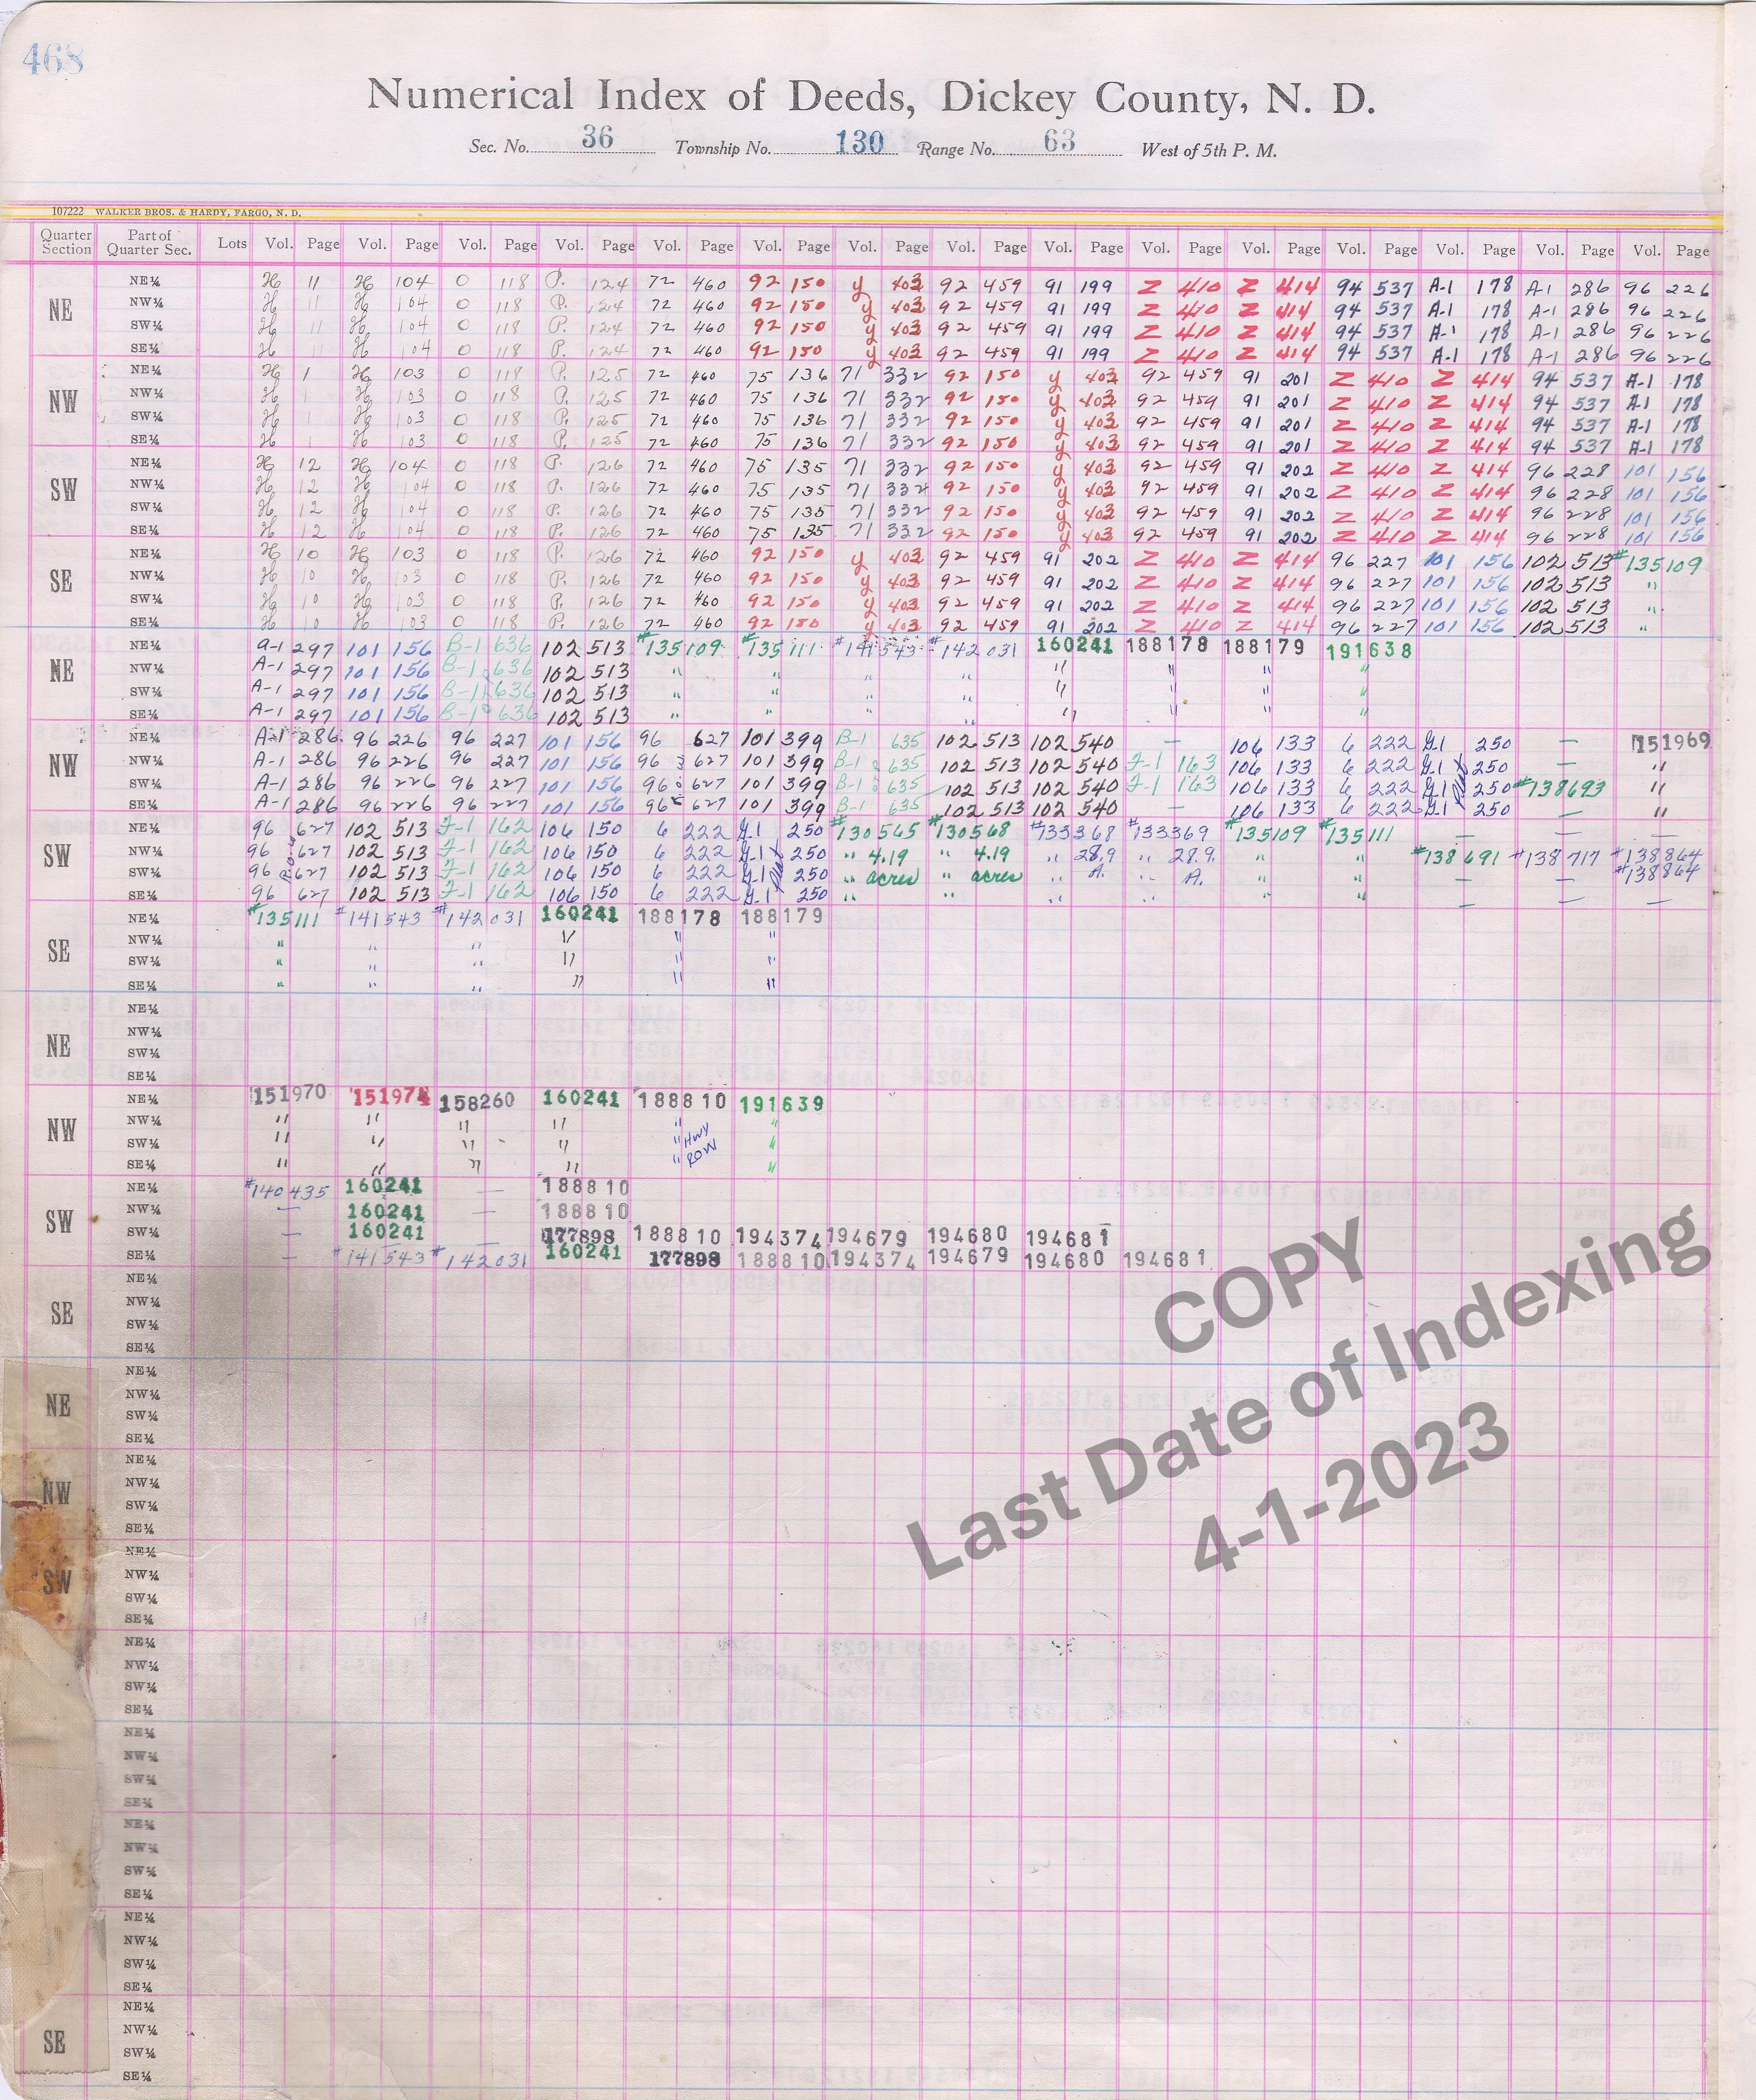 468
Numerical Index of Deeds, Dickey County, N. D.
Sec. No. 36 Township No. 130 Range No. 63 West of 5th P. M.
107222 WALKER BROS. & HARDY, FARGO, N. D.
Quarter Section Part of Quarter Sec. Lots Vol. Page Vol. Page Vol. Page Vol. Page Vol. Page Vol. Page Vol. Page Vol. Page Vol. Page Vol. Page Vol. Page Vol. Page Vol. Page Vol. Page Vol. Page
NE
NE¼ H 11 H 104 O 118 P. 124 72 460 92 150 y 403 92 459 91 199 Z 410 Z 414 94 537 A-1 178 A-1 286 96 226
NW¼ H 11 H 104 O 118 P. 124 72 460 92 150 y 403 92 459 91 199 Z 410 Z 414 94 537 A-1 178 A-1 286 96 226
SW¼ H 11 H 104 O 118 P. 124 72 460 92 150 y 403 92 459 91 199 Z 410 Z 414 94 537 A-1 178 A-1 286 96 226
SE¼ H 11 H 104 O 118 P. 124 72 460 92 150 y 403 92 459 91 199 Z 410 Z 414 94 537 A-1 178 A-1 286 96 226
NW
NE¼ H 1 H 103 O 118 P. 125 72 460 75 136 71 332 92 150 y 403 92 459 91 201 Z 410 Z 414 94 537 A-1 178
NW¼ H 1 H 103 O 118 P. 125 72 460 75 136 71 332 92 150 y 403 92 459 91 201 Z 410 Z 414 94 537 A-1 178
SW¼ H 1 H 103 O 118 P. 125 72 460 75 136 71 332 92 150 y 403 92 459 91 201 Z 410 Z 414 94 537 A-1 178
SE¼ H 1 H 103 O 118 P. 125 72 460 75 136 71 332 92 150 y 403 92 459 91 201 Z 410 Z 414 94 537 A-1 178
SW
NE¼ H 12 H 104 O 118 P. 126 72 460 75 135 71 332 92 150 y 403 92 459 91 202 Z 410 Z 414 96 228 101 156
NW¼ H 12 H 104 O 118 P. 126 72 460 75 135 71 332 92 150 y 403 92 459 91 202 Z 410 Z 414 96 228 101 156
SW¼ H 12 H 104 O 118 P. 126 72 460 75 135 71 332 92 150 y 403 92 459 91 202 Z 410 Z 414 96 228 101 156
SE¼ H 12 H 104 O 118 P. 126 72 460 75 135 71 332 92 150 y 403 92 459 91 202 Z 410 Z 414 96 228 101 156
SE
NE¼ H 10 H 103 O 118 P. 126 72 460 92 150 y 403 92 459 91 202 Z 410 Z 414 96 227 101 156 102 513 #135109
NW¼ H 10 H 103 O 118 P. 126 72 460 92 150 y 403 92 459 91 202 Z 410 Z 414 96 227 101 156 102 513 "
SW¼ H 10 H 103 O 118 P. 126 72 460 92 150 y 403 92 459 91 202 Z 410 Z 414 96 227 101 156 102 513 "
SE¼ H 10 H 103 O 118 P. 126 72 460 92 150 y 403 92 459 91 202 Z 410 Z 414 96 227 101 156 102 513 "
NE
NE¼ A-1 297 101 156 B-1 636 102 513 #135109 #135111 #141543 #142031 160241 188178 188179 191638
NW¼ A-1 297 101 156 B-1 636 102 513 " " " " " " " "
SW¼ A-1 297 101 156 B-1 636 102 513 " " " " " " " "
SE¼ A-1 297 101 156 B-1 636 102 513 " " " " " " " "
NW
NE¼ A-1 286 96 226 96 227 101 156 96 627 101 399 B-1 635 102 513 102 540 — 106 133 6 222 G.1 250 — 151969
NW¼ A-1 286 96 226 96 227 101 156 96 627 101 399 B-1 635 102 513 102 540 F-1 163 106 133 6 222 G.1 250 — "
SW¼ A-1 286 96 226 96 227 101 156 96 627 101 399 B-1 635 102 513 102 540 F-1 163 106 133 6 222 G.1 Plat 250 #138693 "
SE¼ A-1 286 96 226 96 227 101 156 96 627 101 399 B-1 635 102 513 102 540 — 106 133 6 222 G.1 250 — "
SW
NE¼ 96 627 102 513 F-1 162 106 150 6 222 G.1 250 #130565 #130568 #133368 #133369 #135109 #135111 — — —
NW¼ 96 627 102 513 F-1 162 106 150 6 222 G.1 250 " 4.19 " 4.19 " 28.9 " 28.9. " " #138691 #138717 #138864
SW¼ 96 627 102 513 F-1 162 106 150 6 222 G.1 Plat 250 " acres " acres " A. " A. " " — — #138864
SE¼ 96 627 102 513 F-1 162 106 150 6 222 G.1 250 " " " " " " — — —
SE
NE¼ #135111 #141543 #142031 160241 188178 188179
NW¼ " " " " " "
SW¼ " " " " " "
SE¼ " " " " " "
NE
NE¼
NW¼
SW¼
SE¼
NW
NE¼ 151970 158260 160241 188810 191639
NW¼ " " " " " "
SW¼ " " " " " Hwy "
SE¼ " " " " " ROW "
SW
NE¼ #140435 160241 — 188810
NW¼ — 160241 — 188810
SW¼ — 160241 — 177898 188810 194374 194679 194680 194681
SE¼ — #141543 #142031 160241 177898 188810 194374 194679 194680 194681
SE
NE¼
NW¼
SW¼
SE¼
NE
NE¼
NW¼
SW¼
SE¼
NW
NE¼
NW¼
SW¼
SE¼
SW
NE¼
NW¼
SW¼
SE¼
NE¼
NW¼
SW¼
SE¼
NE¼
NW¼
SW¼
SE¼
NE¼
NW¼
SW¼
SE¼
NE¼
NW¼
SW¼
SE¼
SE
NE¼
NW¼
SW¼
SE¼
COPY
Last Date of Indexing
4-1-2023